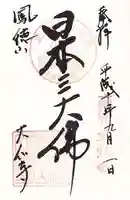 奉拝
平成十年九月一日
日本三大佛
鳳徳山
大仏寺